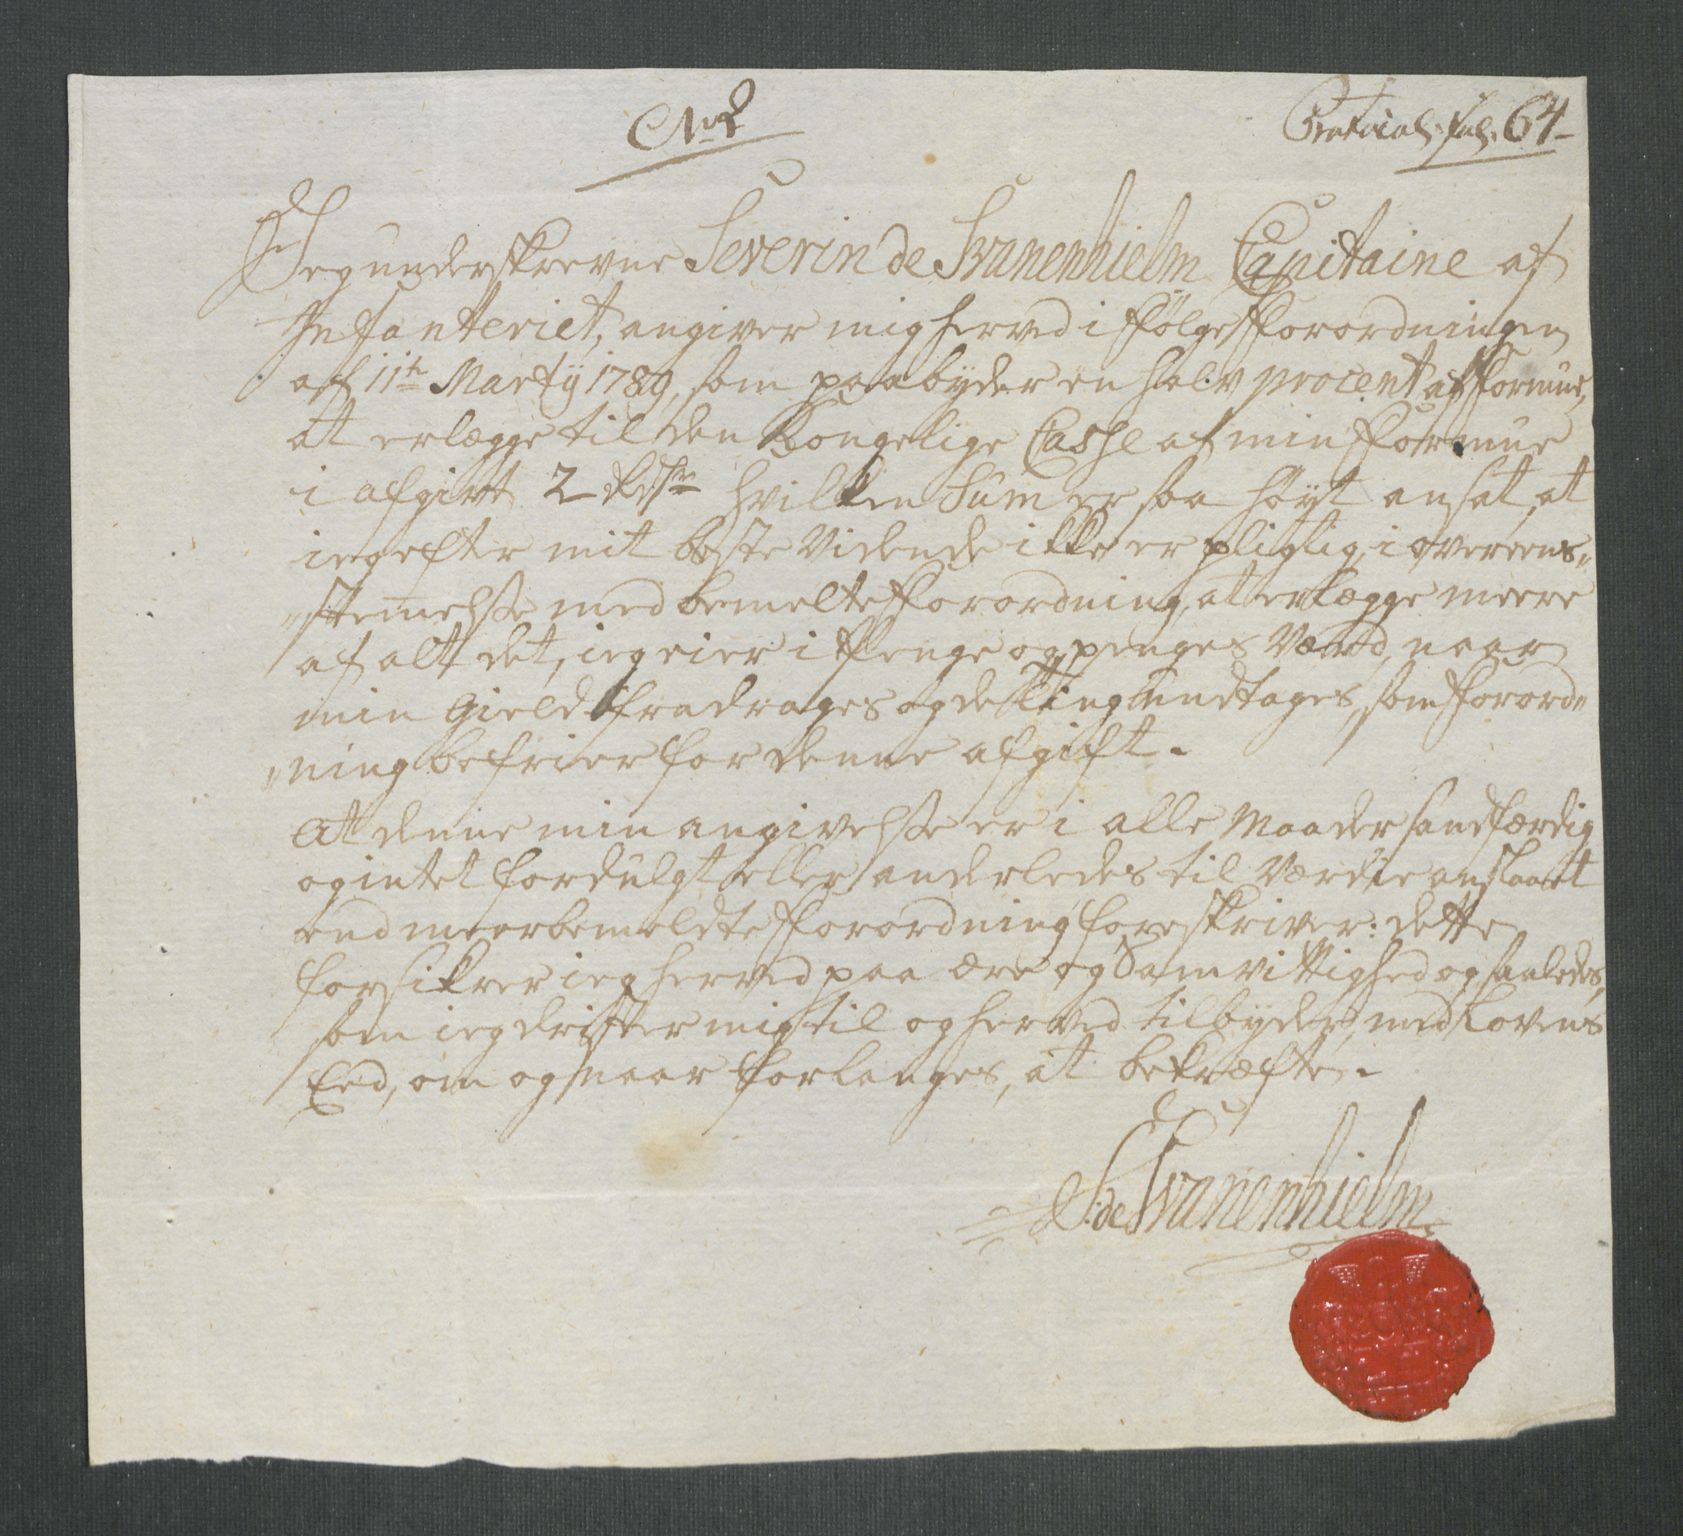 No 2
Protocol. fol. 64
Jeg underskrevne Severin de Svanenhielm Capitaine af
Infanteriet, angiver mig herved i følge Forordningen
af 11te Martÿ 1789, som paabÿder en halv procent af Formue,
at erlægge til den Kongelige Casse af min Formue
i afgivt 2 Rdlr hvilken Sum er saa höÿt ansat, at
ieg efter mit beste Vidende ikke er pligtig, i overeens„
„stemelsse med bemelte Forordning, at erlægge meere
af alt det, ieg eier i Penge og penges Værd, naar
min Gield fradrages og de Ting undtages, som Forord„
„ning befrier for denne afgift.
At denne min angivelsse er i alle Maader sandfærdig
og intet fordulgt eller anderledes til Værdie anslaaet
end meerbemeldte Forordning foreskriver: dette
forsikrer ieg herved paa ære og Samvittighed og saaledes,
som ieg drister mig til og herved tilbÿder, med Lovens
Eed, om og naar forlanges, at bekræfte.
S: de Svanenhielm